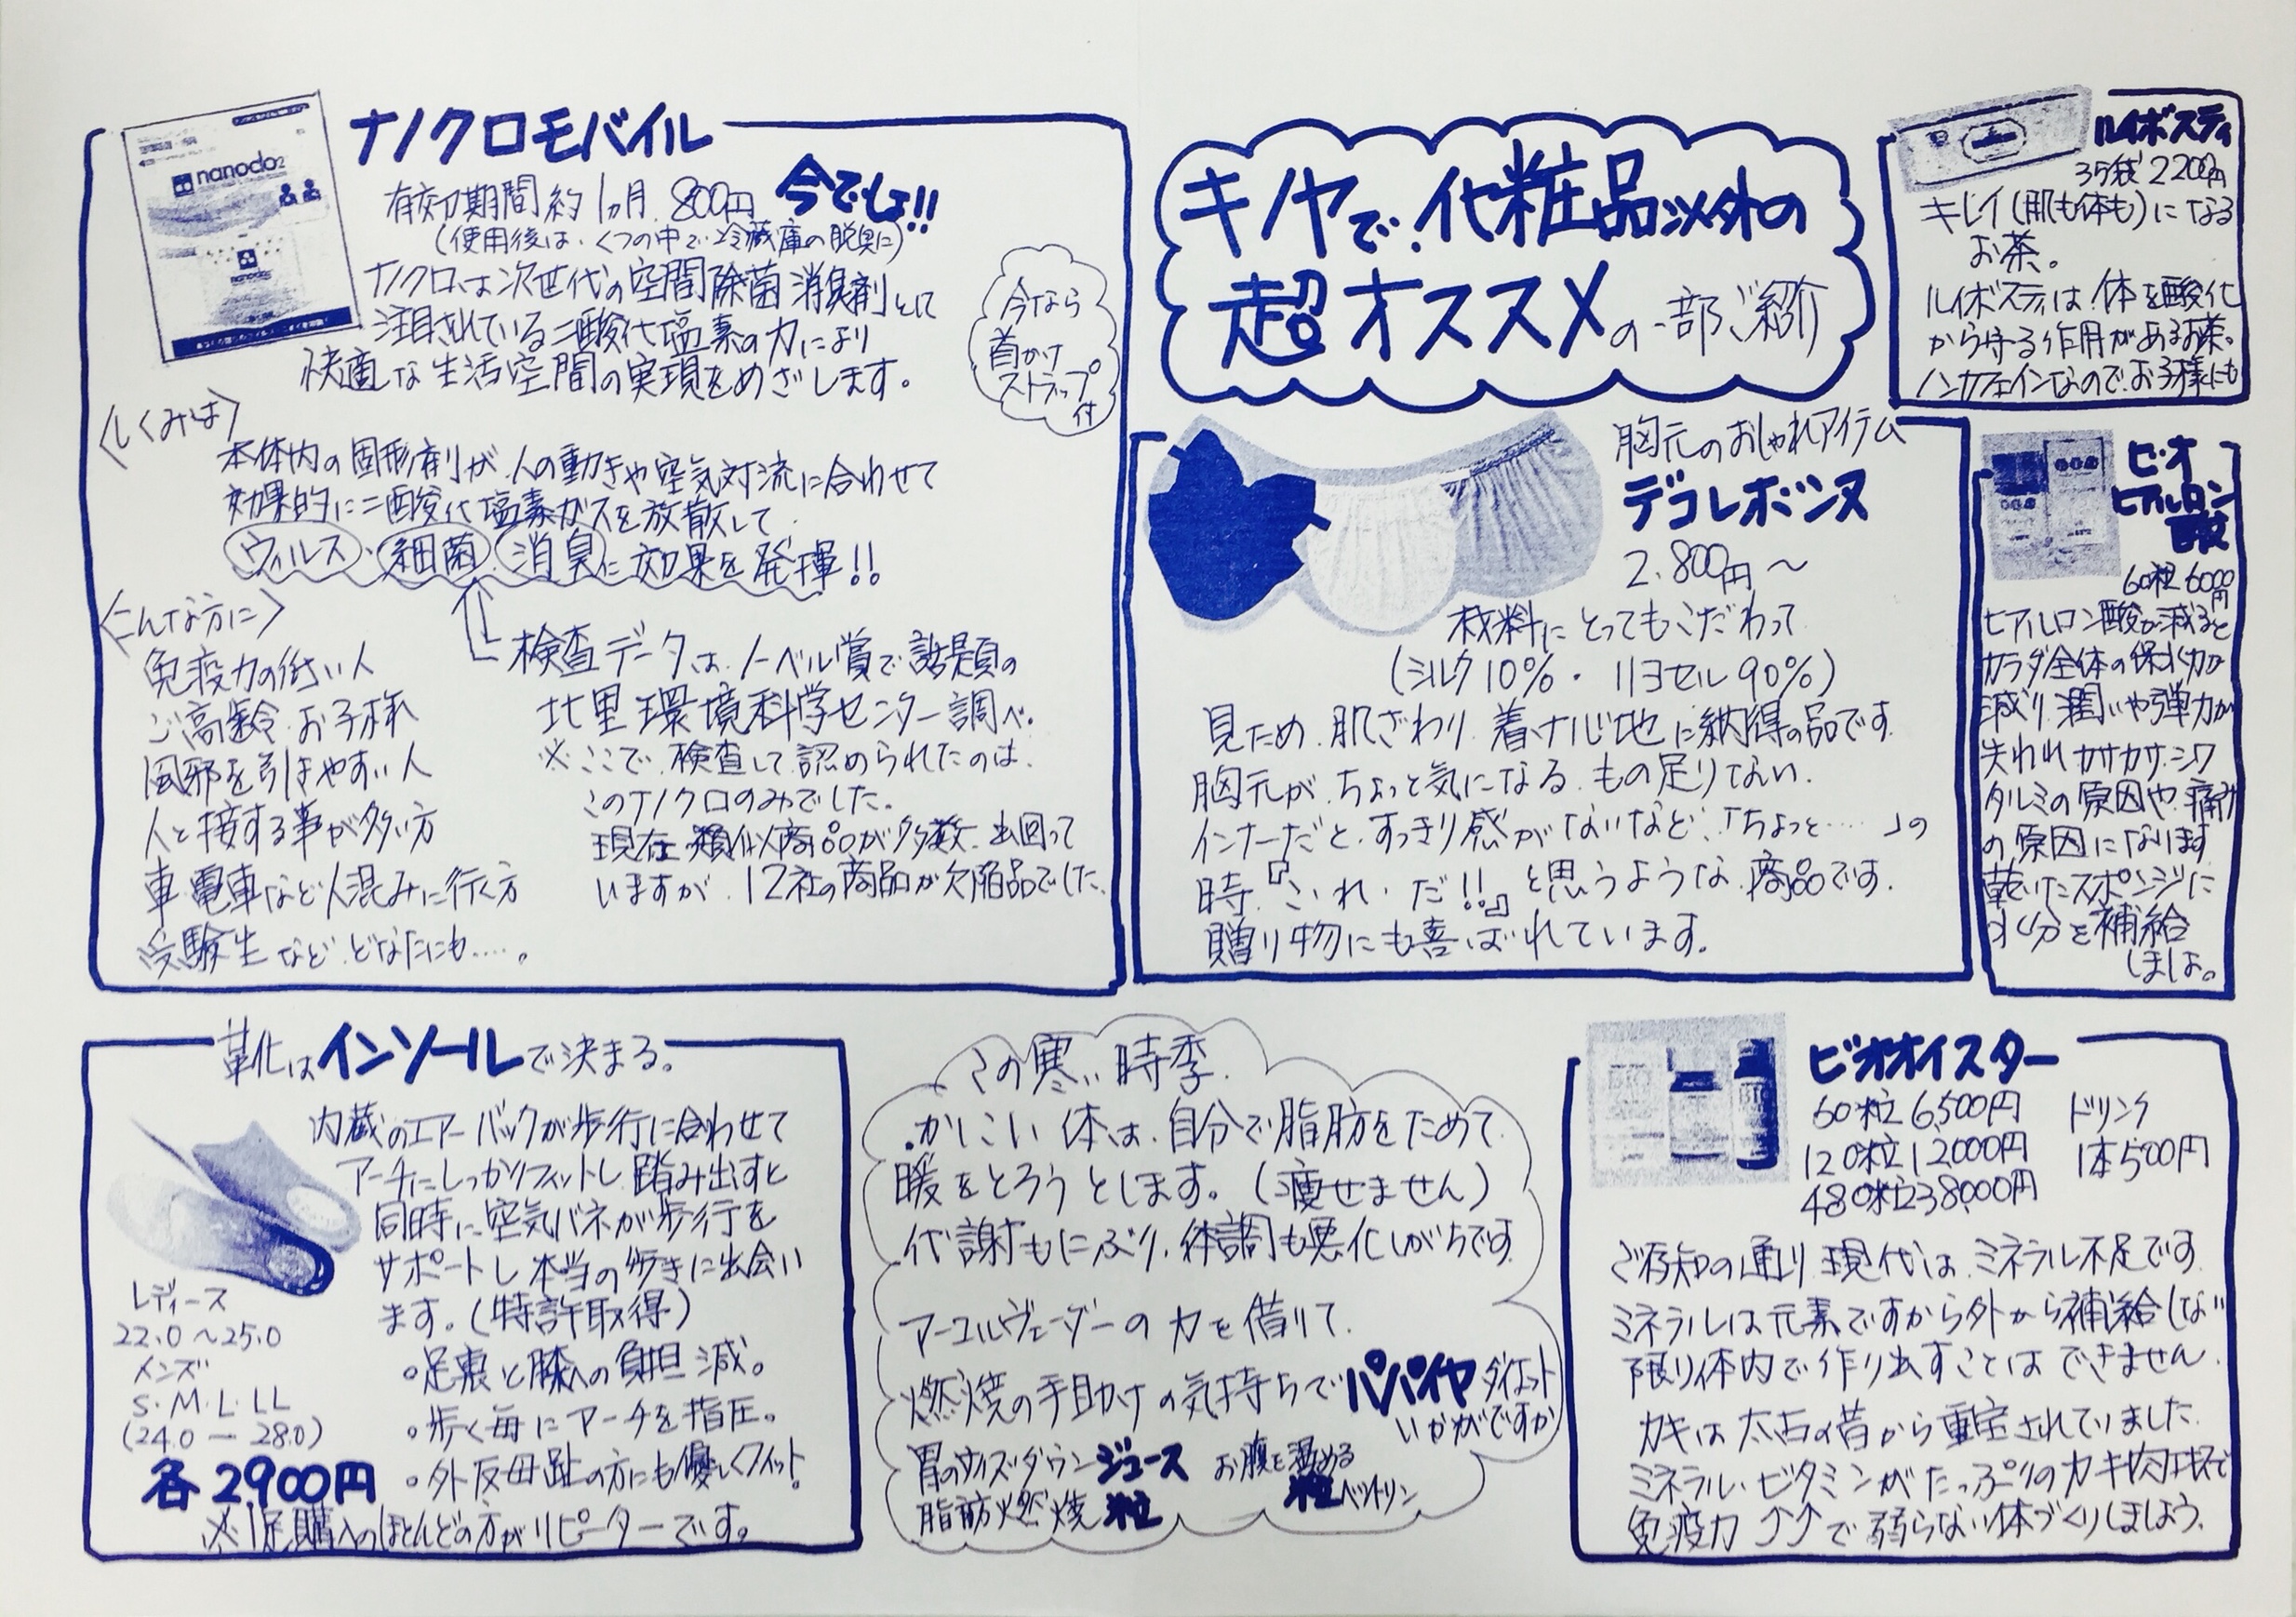 nanoclo2
ナノクロモバイル
有効期間 約1ヵ月 800円 今でしょ!!
(使用後は、くつの中で・冷蔵庫の脱臭に)
ナノクロは次世代の空間除菌消臭剤として
注目されている二酸化塩素の力により
快適な生活空間の実現をめざします。
今なら
首かけ
ストラップ
付
〈しくみは〉
本体内の固形剤が、人の動きや空気対流に合わせて
効果的に二酸化塩素ガスを放散して
ウィルス・細菌・消臭に効果を発揮!!
〈こんな方に〉
免疫力の低い人
ご高齢・お子様
風邪を引きやすい人
人と接する事が多い方
車・電車など人混みに行く方
受験生など どなたにも‥‥。
検査データは、ノーベル賞で話題の
北里環境科学センター調べ。
※ここで、検査して認められたのは、
このナノクロのみでした。
現在、類似商品が多数、出回って
いますが、12社の商品が欠陥品でした。
キノヤで、化粧品以外の
超オススメの一部ご紹介
ルイボスティ
35袋 2200円
キレイ(肌も体も)になる
お茶。
ルイボスティは、体を酸化
から守る作用があるお茶。
ノンカフェインなので、お子様にも
胸元のおしゃれアイテム
デコレボンヌ
2,800円〜
材料にとってもこだわって
(シルク10%・リヨセル90%)
見ため、肌ざわり、着け心地に納得の品です。
胸元が、ちょっと気になる、もの足りない、
インナーだと、すっきり感がないなど、「ちょっと‥‥」の
時、『これ・だ!!』と思うような、商品です。
贈り物にも喜ばれています。
ビオ
ヒアルロン
酸
60粒 6000円
ヒアルロン酸が減ると
カラダ全体の保水力が
減り、潤いや弾力が
失われ カサカサ・シワ
タルミの原因や、痛み
の原因になります
乾いたスポンジに
水分を補給
しましょ。
靴はインソールで決まる。
内蔵のエアーバックが歩行に合わせて
アーチにしっかりフィットし、踏み出すと
同時に空気バネが歩行を
サポートし本当の歩きに出会い
ます。(特許取得)
レディース
22.0〜25.0
メンズ
S・M・L・LL
(24.0ー28.0)
各2900円
○足裏と膝への負担減。
○歩く毎にアーチを指圧。
○外反母趾の方にも優しくフィット!
※1足購入のほとんどの方がリピーターです。
この寒い時季、
かしこい体は、自分で脂肪をためて
暖をとろうとします。(痩せません)
代謝もにぶり、体調も悪化しがちです。
アーユルヴェーダーの力を借りて、
燃焼の手助けの気持ちでパパイヤダイエット
いかがですか
胃のサイズダウン ジュース お腹を温める
脂肪燃焼 粒 粒ペットリン
ビオオイスター
60粒 6,500円 ドリンク
120粒 12000円 1本500円
480粒 38,000円
ご存知の通り、現代は、ミネラル不足です。
ミネラルは元素ですから外から補給しない
限り体内で作り出すことはできません。
カキは太古の昔から重宝されていました。
ミネラル・ビタミンがたっぷりのカキ肉エキスで
免疫力↑↑で弱らない体づくりしましょう。